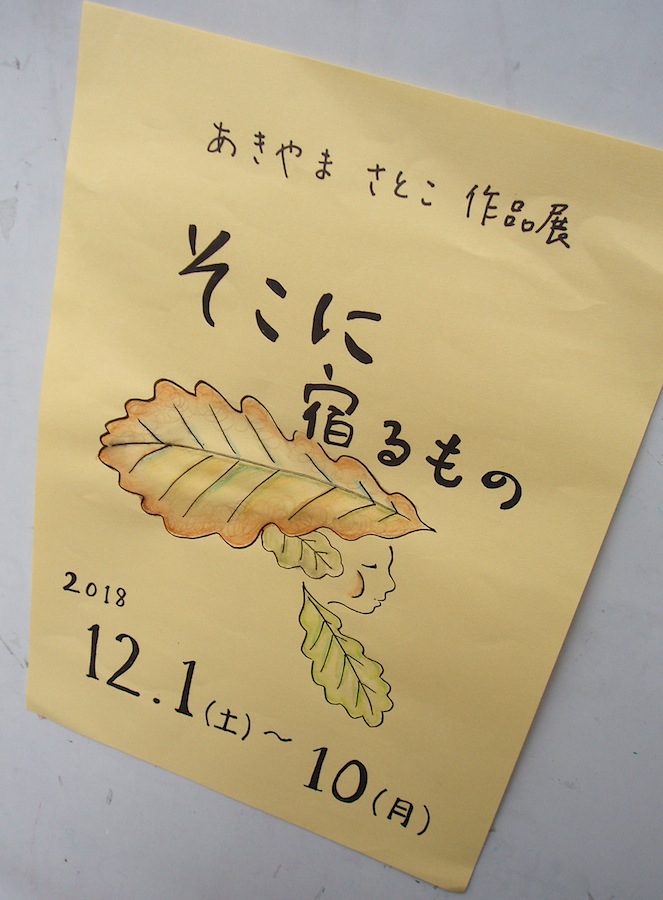 あきやま さとこ 作品展
そこに
宿るもの
2018
12.1(土)～
10(月)